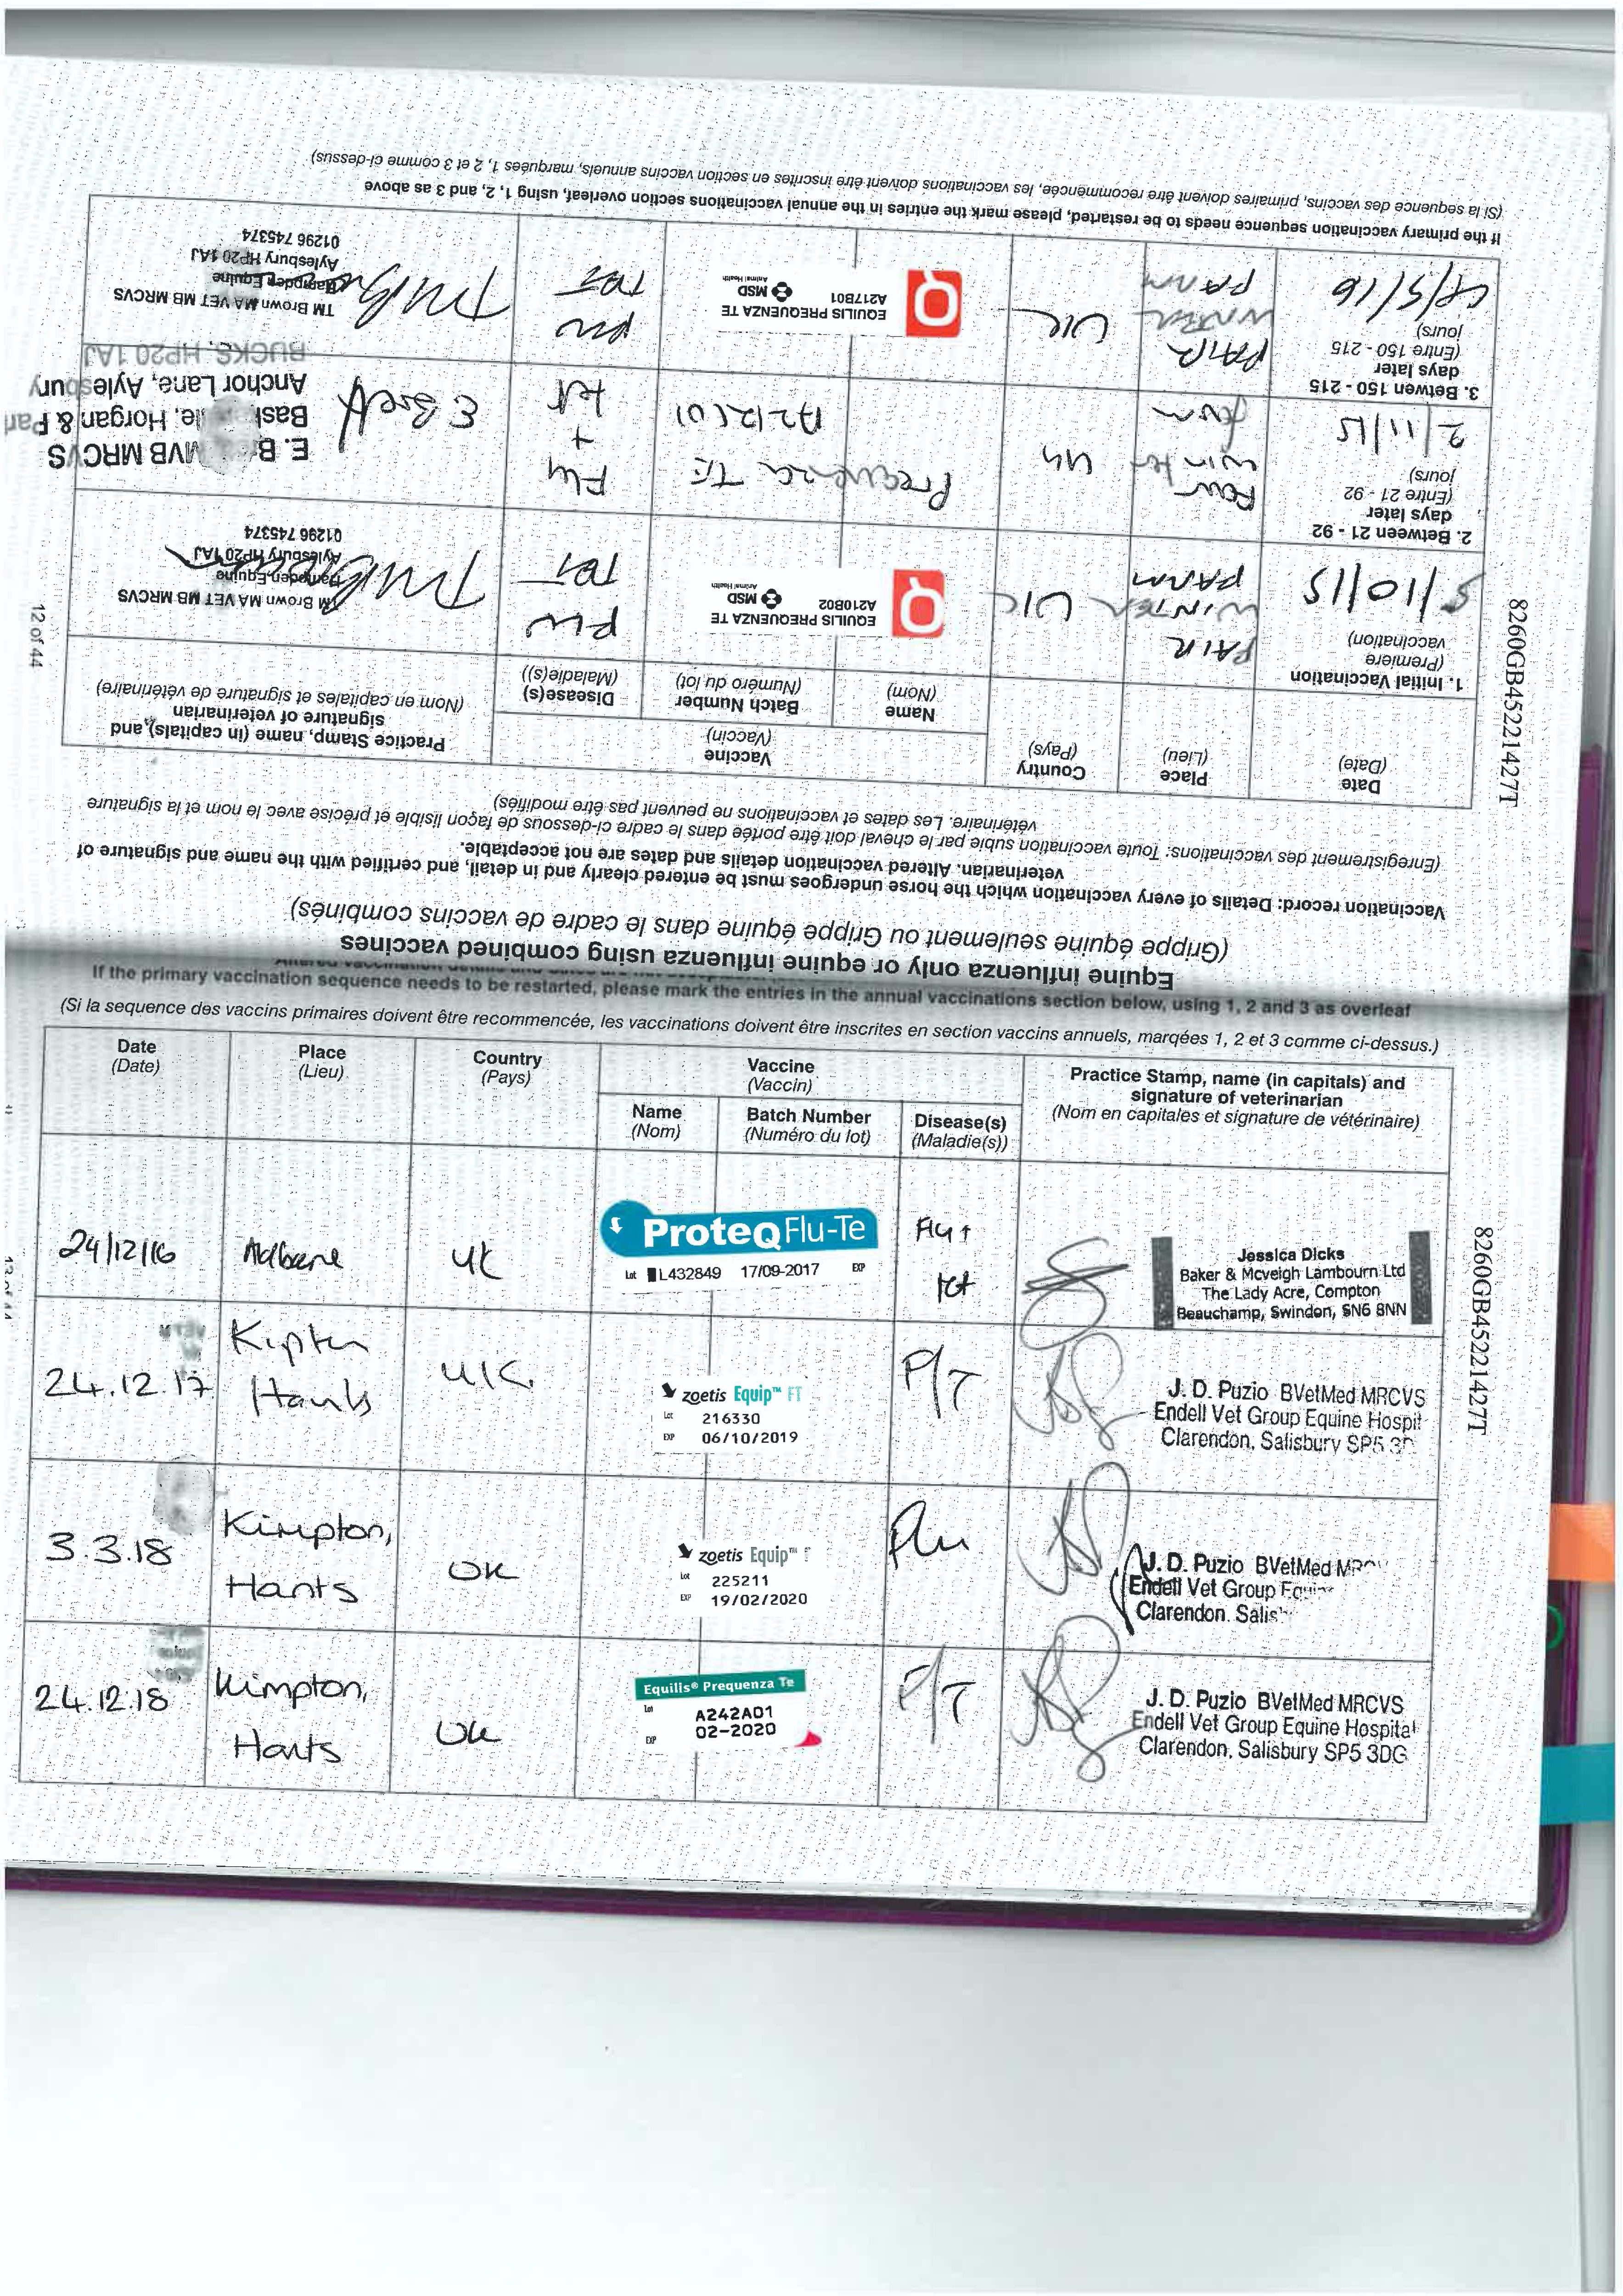 Equine influenza only or equine influenza using combined vaccines
(Grippe équine seulement ou Grippe équine dans le cadre de vaccins combinés)
Vaccination record: Details of every vaccination which the horse undergoes must be entered clearly and in detail, and certified with the name and signature of
veterinarian. Altered vaccination details and dates are not acceptable.
(Enregistrement des vaccinations: Toute vaccination subie par le cheval doit être portée dans le cadre ci-dessous de façon lisible et précise avec le nom et la signature
vétérinaire. Les dates et vaccinations ne peuvent pas être modifiés)
Date
(Date)
Place
(Lieu)
Country
(Pays)
Vaccine
(Vaccin)
Name
(Nom)
Batch Number
(Numéro du lot)
Disease(s)
(Maladie(s))
Practice Stamp, name (in capitals) and
signature of veterinarian
(Nom en capitales et signature de vétérinaire)
1. Initial Vaccination
(Première
vaccination)
5/10/15
FAIR
WINTER
FARM
UK
EQUILIS PREQUENZA TE
A210B02
MSD
Animal Health
FLU
TET
TM Brown MA VET MB MRCVS
Hampden Equine
Aylesbury HP20 1AJ
01296 745374
2. Between 21 - 92
days later
(Entre 21 - 92
jours)
2/11/15
Fair
winter
farm
UK
Prequenza TE
A212C01
Flu
+
tet
E. B MVB MRCVS
Anchor Lane, Aylesbury
BUCKS, HP20 1AJ
3. Betwen 150 - 215
days later
(Entre 150 - 215
jours)
FAIR
WINTER
FARM
UK
EQUILIS PREQUENZA TE
A217B01
MSD
Animal Health
FLU
TET
TM Brown MA VET MB MRCVS
Hampden Equine
Aylesbury HP20 1AJ
01296 745374
If the primary vaccination sequence needs to be restarted, please mark the entries in the annual vaccinations section overleaf, using 1, 2, and 3 as above
(Si la sequence des vaccins, primaires doivent être recommencée, les vaccinations doivent être inscrites en section vaccins annuels, marquées 1, 2 et 3 comme ci-dessus)
12 of 44
8260GB45221427T
If the primary vaccination sequence needs to be restarted, please mark the entries in the annual vaccinations section below, using 1, 2 and 3 as overleaf
(Si la sequence des vaccins primaires doivent être recommencée, les vaccinations doivent être inscrites en section vaccins annuels, marqées 1, 2 et 3 comme ci-dessus.)
Date
(Date)
Place
(Lieu)
Country
(Pays)
Vaccine
(Vaccin)
Name
(Nom)
Batch Number
(Numéro du lot)
Disease(s)
(Maladie(s))
Practice Stamp, name (in capitals) and
signature of veterinarian
(Nom en capitales et signature de vétérinaire)
24/12/16
UK
ProteqFlu-Te
Lot L432849 17/09-2017 EXP
Flu +
tet
Jessica Dicks
Baker & Mcveigh Lambourn Ltd
The Lady Acre, Compton
Beauchamp, Swindon, SN6 8NN
24.12.17
Hants
UK.
zoetis Equip™ FT
Lot 216330
EXP 06/10/2019
F/T
J. D. Puzio BVetMed MRCVS
Endell Vet Group Equine Hospit
Clarendon, Salisbury SP5 3D
3.3.18
Kimpton,
Hants
UK
zoetis Equip™ F
Lot 225211
EXP 19/02/2020
Flu
J. D. Puzio BVetMed MRCV
Endell Vet Group Equine
Clarendon. Salis
24.12.18
Kimpton,
Hants
UK
Equilis® Prequenza Te
Lot A242A01
EXP 02-2020
F/T
J. D. Puzio BVetMed MRCVS
Endell Vet Group Equine Hospital
Clarendon, Salisbury SP5 3DG
8260GB45221427T